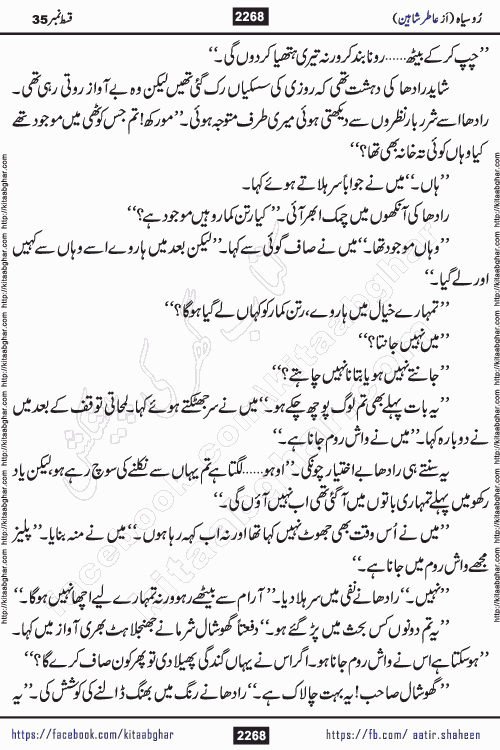 رُوسیاہ (از عاطر شاہین) 2268 قسط نمبر 35
’’چپ کر کے بیٹھ......رونا بند کر ورنہ تیری ہتھیا کر دوں گی۔‘‘
شاید رادھا کی دہشت تھی کہ روزی کی سسکیاں رک گئی تھیں لیکن وہ بے آواز روتی رہی تھی۔
رادھا اسے شرر بار نظروں سے دیکھتی ہوئی میری طرف متوجہ ہوئی۔’’مورکھ! تم جس کوٹھی میں موجود تھے
کیا وہاں کوئی تہ خانہ بھی تھا؟‘‘
’’ہاں۔‘‘میں نے جواباً سر ہلاتے ہوئے کہا۔
رادھا کی آنکھوں میں چمک ابھر آئی۔’’کیا رتن کمار وہیں موجود ہے؟‘‘
’’وہاں موجود تھا۔‘‘میں نے صاف گوئی سے کہا۔’’لیکن بعد میں ہاروے اسے وہاں سے کہیں
اور لے گیا۔‘‘
’’تمہارے خیال میں ہاروے، رتن کمار کو کہاں لے گیا ہوگا؟‘‘
’’میں نہیں جانتا؟‘‘
’’جانتے نہیں ہو یا بتانا نہیں چاہتے؟‘‘
’’یہ بات پہلے بھی تم لوگ پوچھ چکے ہو۔‘‘میں نے سر جھٹکتے ہوئے کہا۔لمحاتی توقف کے بعد میں
نے دوبارہ کہا۔’’میں نے واش روم جانا ہے۔‘‘
یہ سنتے ہی رادھا بے اختیار چونکی۔’’اوہو......لگتا ہے تم یہاں سے نکلنے کی سوچ رہے ہو،لیکن یاد
رکھو میں پہلے تمہاری باتوں میں آ گئی تھی اب نہیں آؤں گی۔‘‘
’’میں نے اُس وقت بھی جھوٹ نہیں کہا تھا اور نہ اب کہہ رہا ہوں۔‘‘میں نے منہ بنایا۔’’پلیز
مجھے واش روم میں جانا ہے۔‘‘
’’نہیں۔‘‘رادھا نے نفی میں سر ہلا دیا۔’’آرام سے بیٹھے رہو ورنہ تمہارے لیے اچھا نہیں ہوگا۔‘‘
’’یہ تم دونوں کس بحث میں پڑ گئے ہو۔‘‘دفعتاً گھوشال شرما نے جھنجلاہٹ بھری آواز میں کہا۔
’’ہو سکتا ہے اس نے واش روم جانا ہو۔اگر اس نے یہاں گندگی پھیلا دی تو پھر کون صاف کرے گا؟‘‘
’’گھوشال صاحب! یہ بہت چالاک ہے۔‘‘رادھا نے رنگ میں بھنگ ڈالنے کی کوشش کی۔’’یہ
https://facebook.com/kitaabghar 2268 https://fb.com/ aatir.shaheen
http://kitaabghar.com http://kitaabghar.com http://kitaabghar.com http://kitaabghar.com